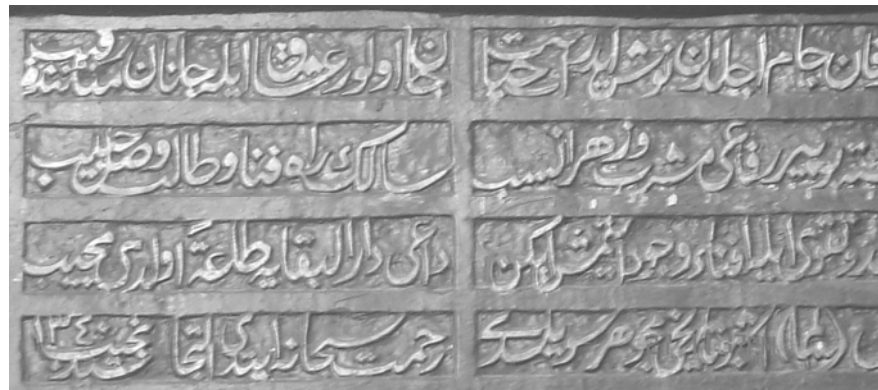 جام اجلدن نوش ایدر آب حیات جان اولور عشاق ایله جانان میاننده رقیب
بو پیر رفاعی مشرب و زهرا نسب سالك راه فنا و طالب وصل حبیب
و تقوی ایله افناء وجود ایتمش ایكن داعی دار البقایه طاعةً اولدی مجیب
تاریخی جوهر سویلدی رحمت سبحانه ایتدی التجا نجیب ١٣٤٠